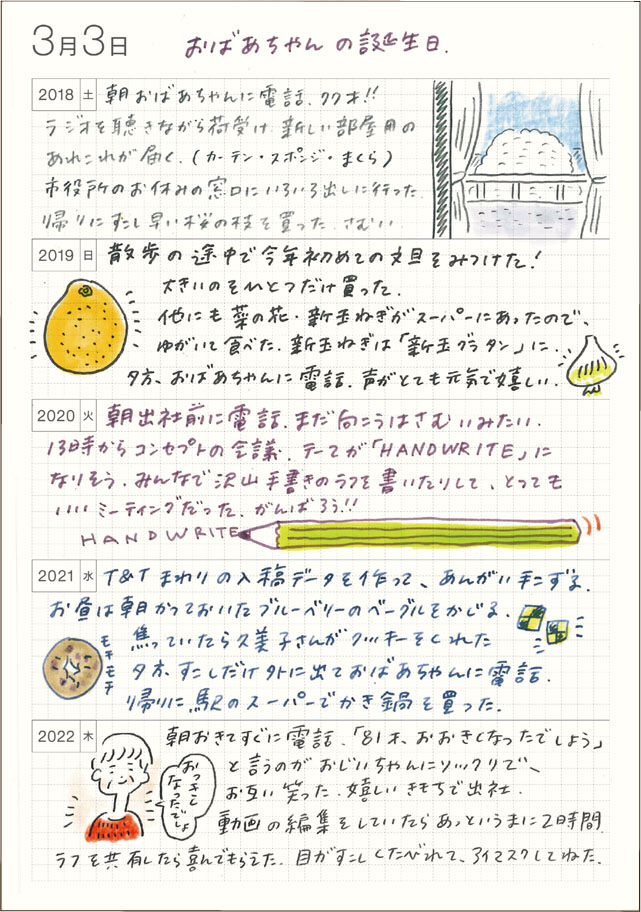 3月3日 おばあちゃんの誕生日.
2018 土 朝おばあちゃんに電話. 77才!!
ラジオを聴きながら荷受け. 新しい部屋用の
あれこれが届く. (カーテン・スポンジ・まくら)
市役所のお休みの窓口にいろいろ出しに行った.
帰りにすこし早い桜の枝を買った. さむい.
2019 日 散歩の途中で今年初めての文旦をみつけた!
大きいのをひとつだけ買った.
他にも菜の花・新玉ねぎがスーパーにあったので、
ゆがいて食べた. 新玉ねぎは「新玉グラタン」に.
夕方、おばあちゃんに電話. 声がとても元気で嬉しい.
2020 火 朝出社前に電話. まだ向こうはさむいみたい.
13時からコンセプトの会議. テーマが「HANDWRITE」に
なりそう. みんなで沢山手書きのラフを書いたりして、とっても
いいミーティングだった. がんばろう!!
HANDWRITE
2021 水 T&Tまわりの入稿データを作って、あんがい手こずる.
お昼は朝かっておいたブルーベリーのベーグルをかじる.
モチモチ
焦っていたら久美子さんがクッキーをくれた
夕方、すこしだけ外に出ておばあちゃんに電話.
帰りに駅のスーパーでかき鍋を買った.
2022 木 朝おきてすぐに電話. 「81才、おおきくなったでしょう」
と言うのがおじいちゃんにソックリで、
お互い笑った. 嬉しいきもちで出社.
おっきくなったでしょ
動画の編集をしていたらあっというまに2時間.
ラフを共有したら喜んでもらえた. 目がすこしくたびれて、アイマスクしてねた.